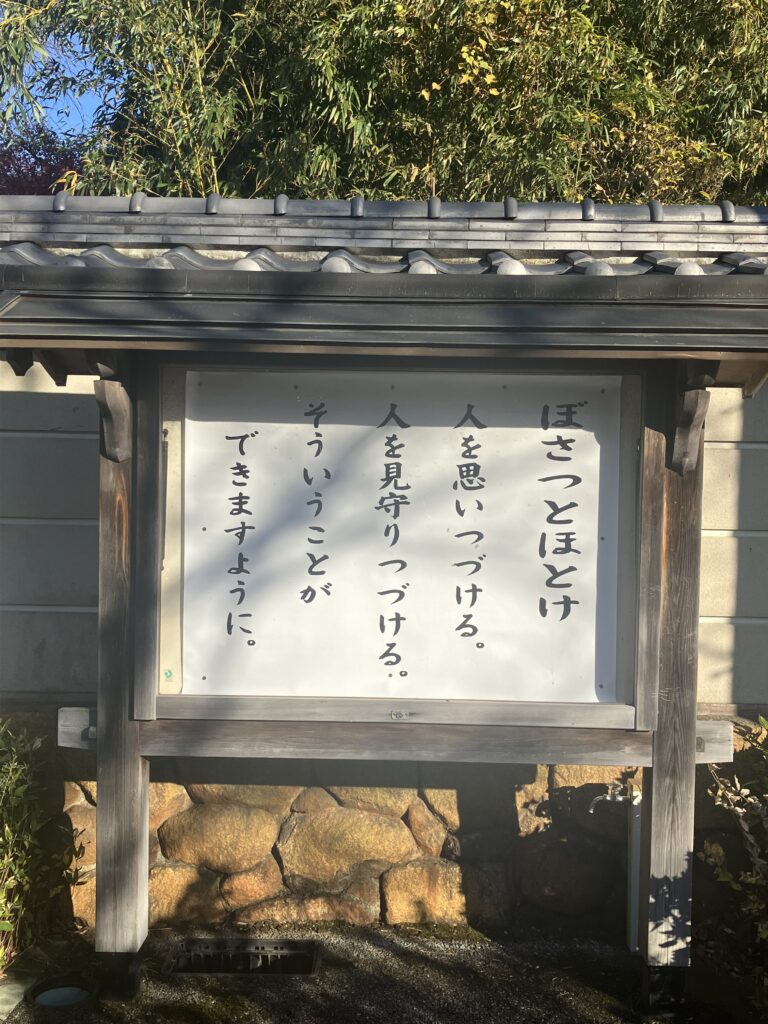 ぼさつとほとけ
人を思いつづける。
人を見守りつづける。
そういうことが
できますように。